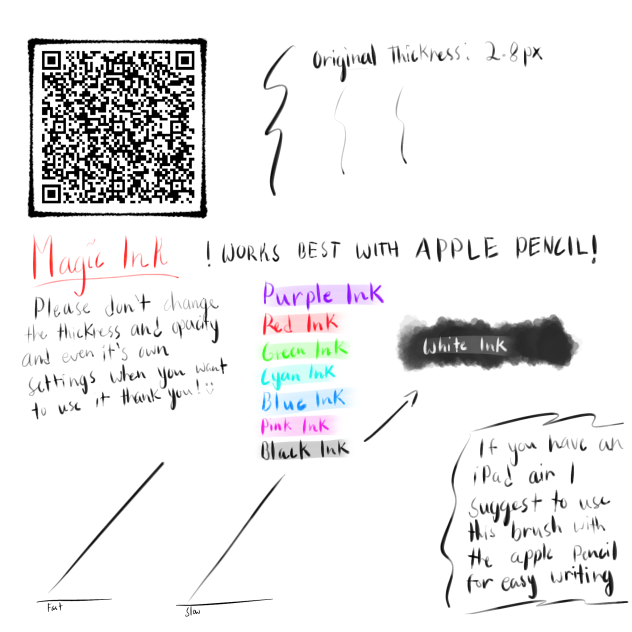 Original Thickness: 2.8px
Magic Ink
! WORKS BEST WITH APPLE PENCIL!
Please don't change
the thickness and opacity
and even it's own
settings when you want
to use it thank you! :)
Purple Ink
Red Ink
Green Ink
Cyan Ink
Blue Ink
Pink Ink
Black Ink
White Ink
If you have an
iPad air I
suggest to use
this brush with
the apple Pencil
for easy writing
Fast
Slow